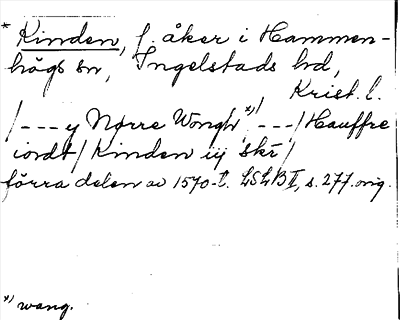 * Kinden, f. åker i Hammen-
högs sn, Ingelstads hd,
Krist. l.
/--- y Nørre Wongh *) / ---/ Hauffre
iordt / Kinden iij skr /
förra delen av 1570-t. LSLB II, s. 277. orig.
*) wang.